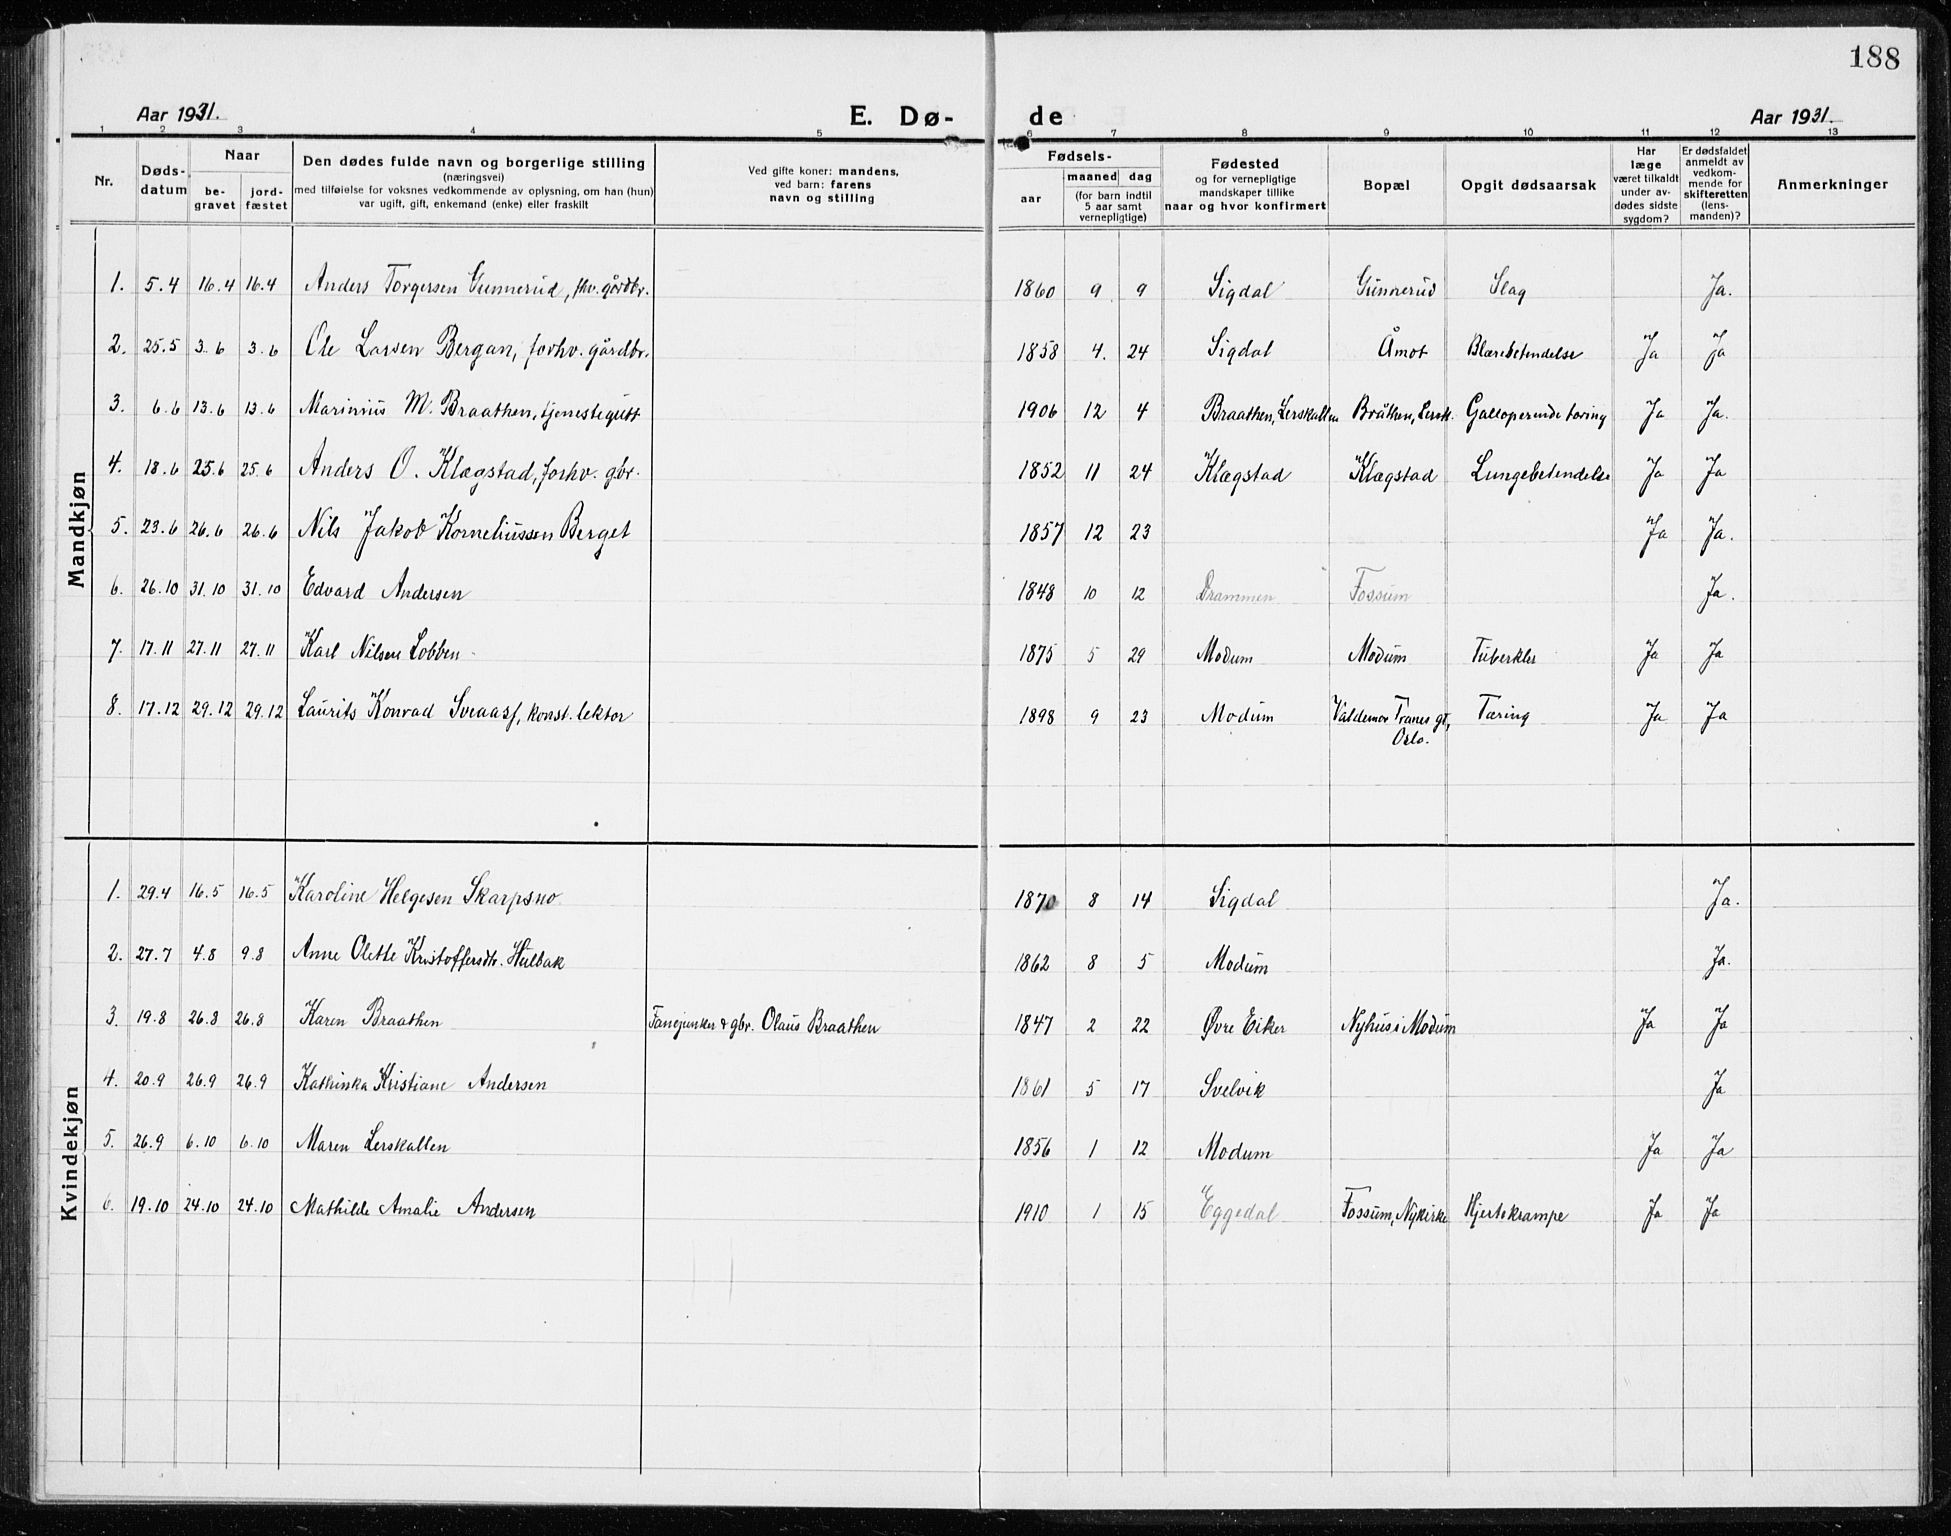 188
Aar 1931.
E. Dø-
de
Aar 1931.
1 2 3 4 5 6 7 8 9 10 11 12 13
Nr.
Døds-
datum
Naar
be-
gravet
jord-
fæstet
Den dødes fulde navn og borgerlige stilling
(næringsvei)
med tilføielse for voksnes vedkommende av oplysning, om han (hun)
var ugift, gift, enkemand (enke) eller fraskilt
Ved gifte koner: mandens,
ved barn: farens
navn og stilling
Fødsels-
aar
maaned dag
(for barn indtil
5 aar samt
vernepligtige)
Fødested
og for vernepligtige
mandskaper tillike
naar og hvor konfirmert
Bopæl
Opgit dødsaarsak
Har
læge
været tilkaldt
under av-
dødes sidste
sygdom?
Er dødsfaldet
anmeldt av
vedkom-
mende for
skifteretten
(lens-
manden)?
Anmerkninger
Mandkjøn
1. 5.4 16.4 16.4 Anders Torgersen Gunnerud, fhv. gårdbr. 1860 9 9 Sigdal Gunnerud Slag Ja.
2. 25.5 3.6 3.6 Ole Larsen Bergan, forhv. gårdbr. 1858 4. 24 Sigdal Åmot Blærebetendelse Ja Ja
3. 6.6 13.6 13.6 Marinius M. Braathen, tjenestegutt 1906 12 4 Braathen, Lerskallen Bråthen, Lersk. Galloperende tæring Ja Ja.
4. 18.6 25.6 25.6 Anders O. Klægstad, forhv. gbr. 1852 11 24 Klægstad Klægstad Lungebetendelse Ja Ja
5. 23.6 26.6 26.6 Nils Jakob Korneliussen Berget 1857 12 23 Ja Ja.
6. 26.10 31.10 31.10 Edvard Andersen 1848 10 12 Drammen Fossum Ja.
7. 17.11 27.11 27.11 Karl Nilsen Lobben 1875 5 29 Modum Modum Tuberkler Ja Ja
8. 17.12 29.12 29.12 Laurits Konrad Sveaas, konst. lektor 1898 9 23 Modum Valdemar Tranes gt, Tæring Ja Ja
Oslo.
Kvindekjøn
1. 29.4 16.5 16.5 Karoline Helgesen Skarpsno 1870 8 14 Sigdal Ja.
2. 27.7 4.8 9.8 Anne Olette Kristoffersdtr. Hulbak 1862 8 5 Modum Ja.
3. 19.8 26.8 26.8 Karen Braathen Fanejunker & gbr. Olaus Braathen 1847 2 22 Øvre Eiker Nyhus i Modum Ja Ja
4. 20.9 26.9 26.9 Kathinka Kristiane Andersen 1861 5 17 Svelvik Ja
5. 26.9 6.10 6.10 Maren Lerskallen 1856 1 12 Modum Ja Ja
6. 19.10 24.10 24.10 Mathilde Amalie Andersen 1910 1 15 Eggedal Fossum, Nykirke Hjertekrampe Ja Ja